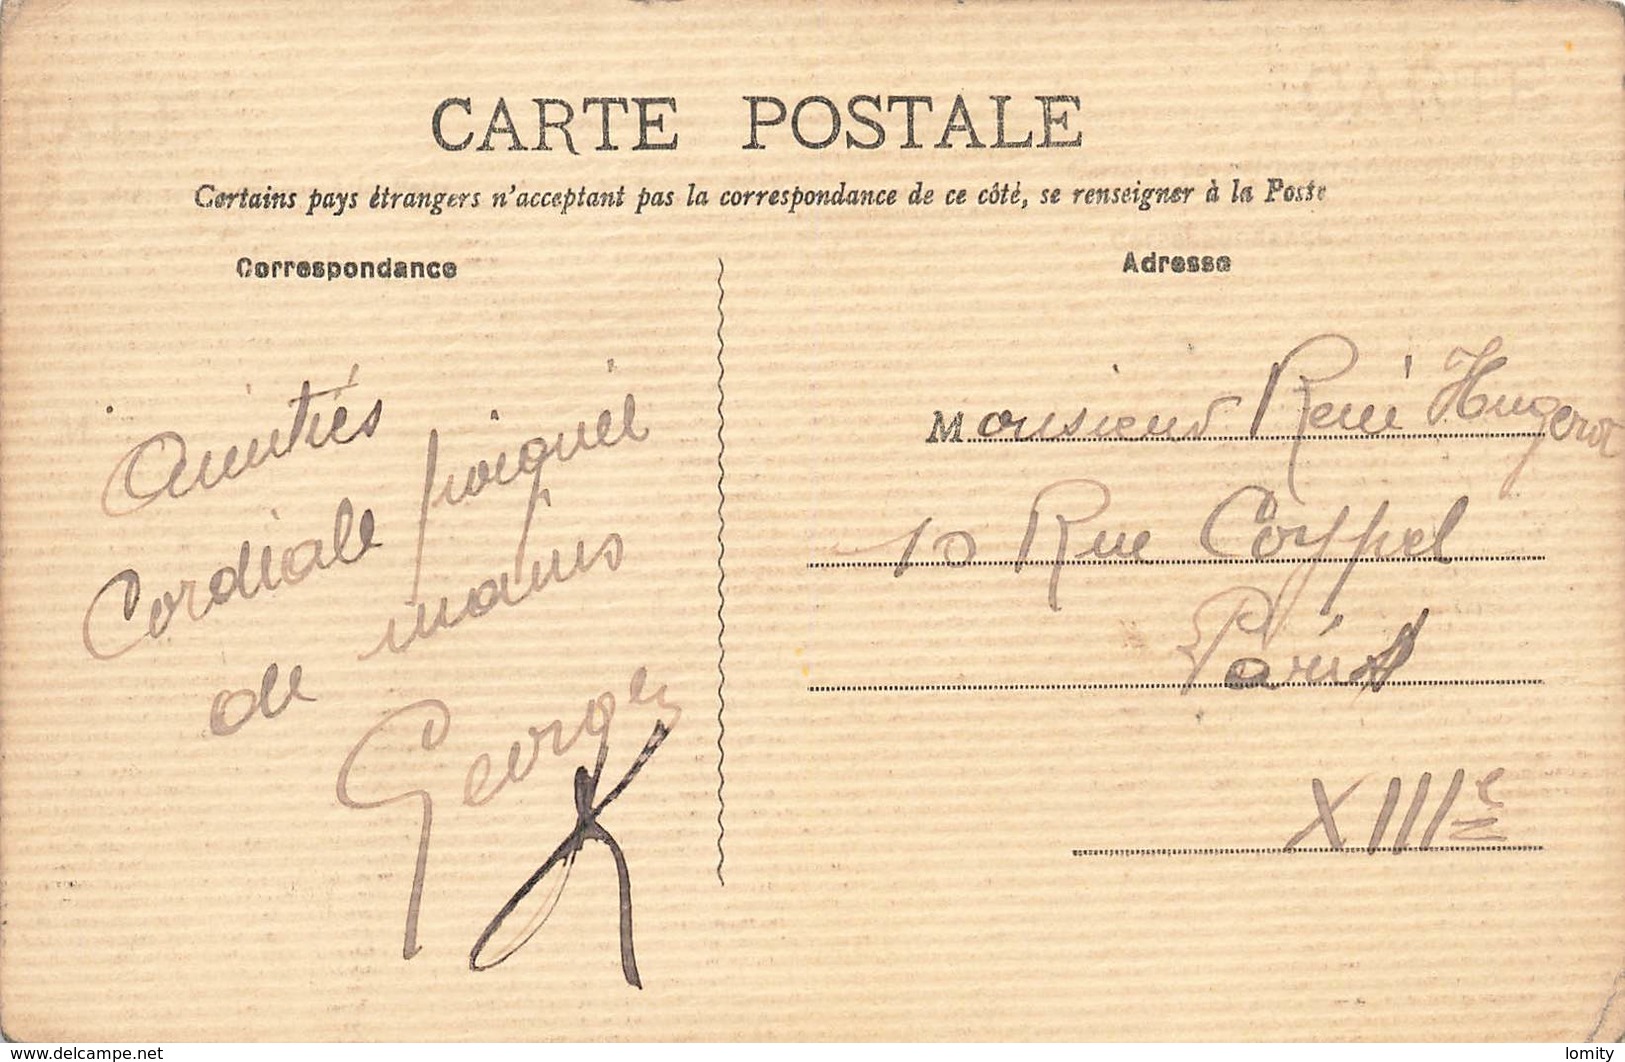 CARTE POSTALE
Certains pays étrangers n'acceptant pas la correspondance de ce côté, se renseigner à la Poste
Correspondance
Amitiés
Cordiale poignée
de mains
Georges
K
Adresse
Monsieur René Hugerot
10 Rue Coypel
Paris
XIIIe
www.delcampe.net
lomity